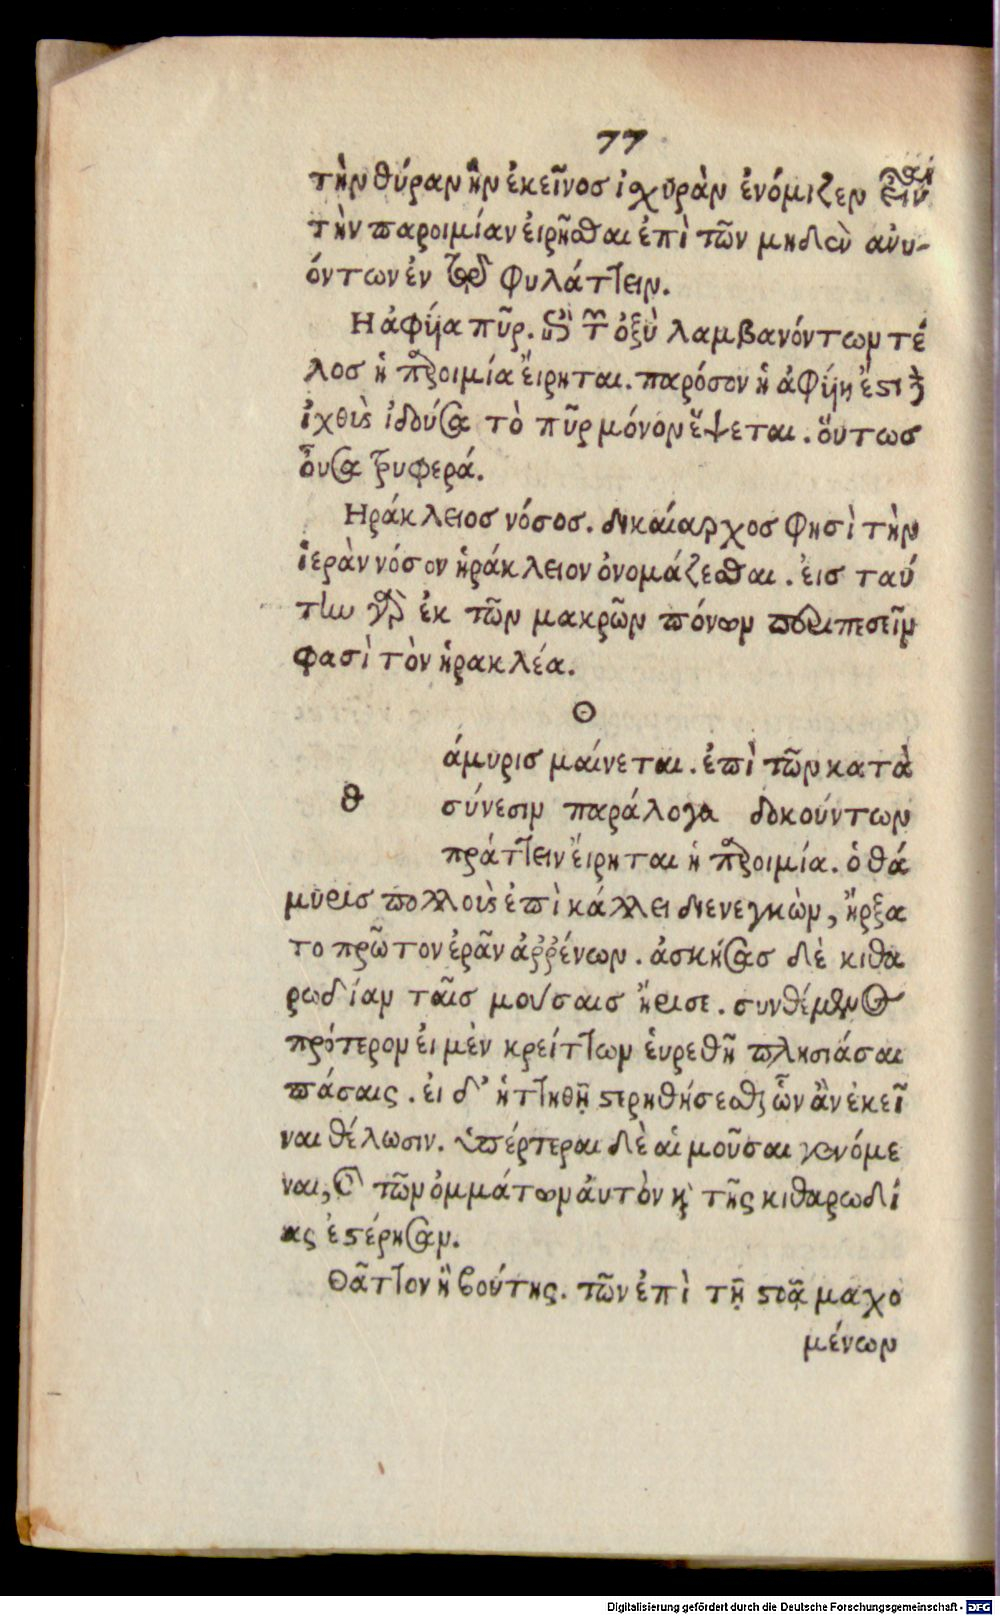 77
τὴν θύραν ἣν ἐκεῖνος ἰχυρὰν ἐνόμιζεν
τὴν παροιμίαν ἐιρῆσθαι ἐπὶ τῶν μηδὲν ἀνυ-
όντων ἐν τῷ φυλάττειν.
Η ἀφύα πῦρ. ὀξὺ λαμβανόντων τέ
λος ἡ παροιμία ἔιρηται. παρόσον ἡ ἀφύη ἔστι
ἰχθὺς ἰδοῦσα τὸ πῦρ μόνον ἕψεται. ὅυτως
ὀυσα τρυφερά.
Ηράκλειος νόσος. δικαίαρχος φησὶ τὴν
ἱερὰν νόσον ἡράκλειον ὀνομάζεσθαι. ἐις ταύ
την γὰρ ἐκ τῶν μακρῶν πόνων περιπεσεῖν
φασὶ τὸν ἡρακλέα.
Θ
άμυρις μαίνεται. ἐπὶ τῶν κατὰ
θ σύνεσιν παράλογα δοκούντων
πράττειν ἔιρηται ἡ παροιμία. ὁ θά
μυρις πολλοὺς ἐπὶ κάλλει διενεγκὼν, ἤρξα
το πρῶτον ἐρᾶν ἀῤῥένων. ἀσκήσας δὲ κιθα
ρωδίαν ταῖς μούσαις ἤρισε. συνθέμενος
πρότερον ἐι μὲν κρείττων ἑυρεθῆ πλησιάσαι
πάσαις. ἐι δ' ἡττηθῇ στερηθήσεσθαι ὧν ἂν ἐκεῖ
ναι θέλωσιν. ὑπέρτεραι δὲ αἱ μοῦσαι γενόμε
ναι, καὶ τῶν ὀμμάτων ἀυτὸν καὶ τῆς κιθαρωδί
ας ἐστέρησαν.
Θᾶττον ἢ βούτης. τῶν ἐπὶ τῇ στοᾷ μαχο
μένων
Digitalisierung gefördert durch die Deutsche Forschungsgemeinschaft - DFG